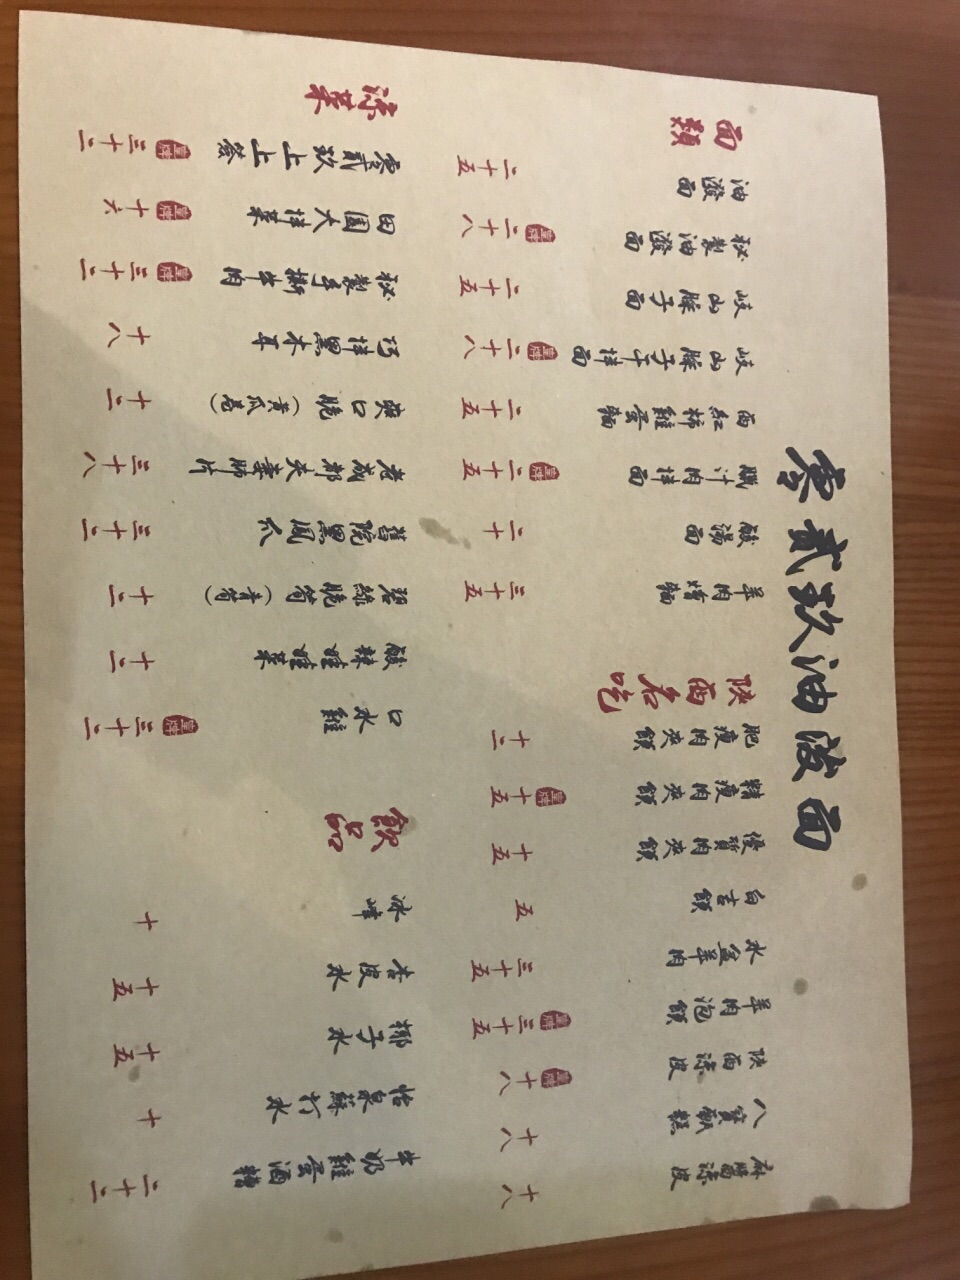 零貳玖油潑面
面類
油潑面 二十五
秘製油潑面 皇牌 二十八
岐山臊子面 二十五
岐山臊子干拌面 皇牌 二十八
西紅柿雞蛋麵 二十五
臘汁肉拌面 皇牌 二十五
酸湯面 二十
羊肉燴麵 三十五
陝西名吃
肥瘦肉夾饃 十二
精瘦肉夾饃 皇牌 十五
優質肉夾饃 十五
白吉饃 五
水盆羊肉 三十五
羊肉泡饃 皇牌 三十五
陝西涼皮 皇牌 十八
八寶甑糕 十八
麻醬涼皮 十八
涼菜
零貳玖上上簽 皇牌 三十二
田園大拌菜 皇牌 十六
秘製手撕牛肉 皇牌 三十二
巧拌黑木耳 十八
爽口脆(黃瓜卷) 十二
老成都夫妻肺片 三十八
舊院黑鳳爪 三十二
碧綠脆筍(青筍) 十二
酸辣娃娃菜 十二
口水雞 皇牌 三十二
飲品
冰峰 十
杏皮水 十五
椰子水 十五
怡泉蘇打水 十
牛奶雞蛋酒糟 二十二